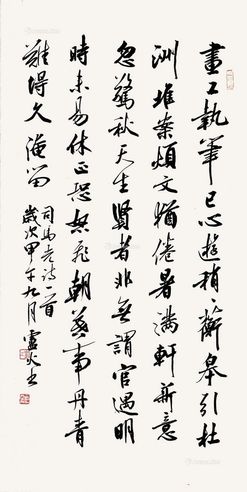 畫工執筆已心遊稍〻蘚皋引杜
洲堆案煩文猶倦暑滿軒新意
忽驚秋天生賢者非無謂官遇明
時未易休正恐怒飛朝暮事丹青
難得久淹留
司馬光詩一首
歲次甲午九月